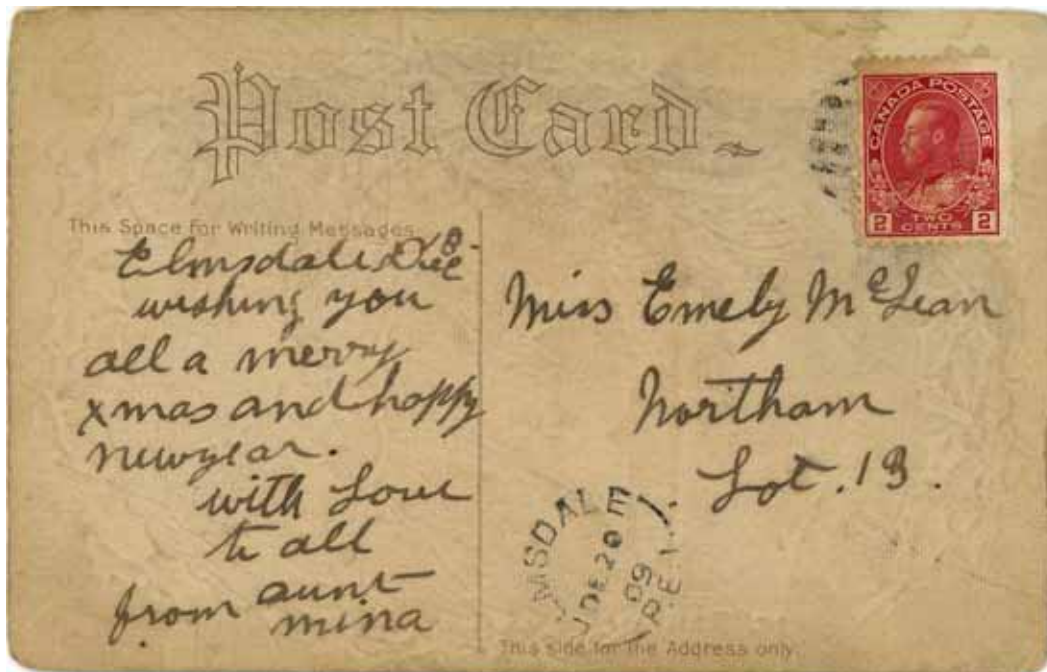 Post Card
CANADA POSTAGE
2 TWO CENTS 2
This Space for Writing Messages.
Elmsdale Dec
wishing you
all a merry
xmas and happy
newyear.
with Love
to all
from aunt
mina
Miss Emely McLean
Northam
Lot. 13.
LMSDALE
DE 20
09
P.E.I.
This side for the Address only.